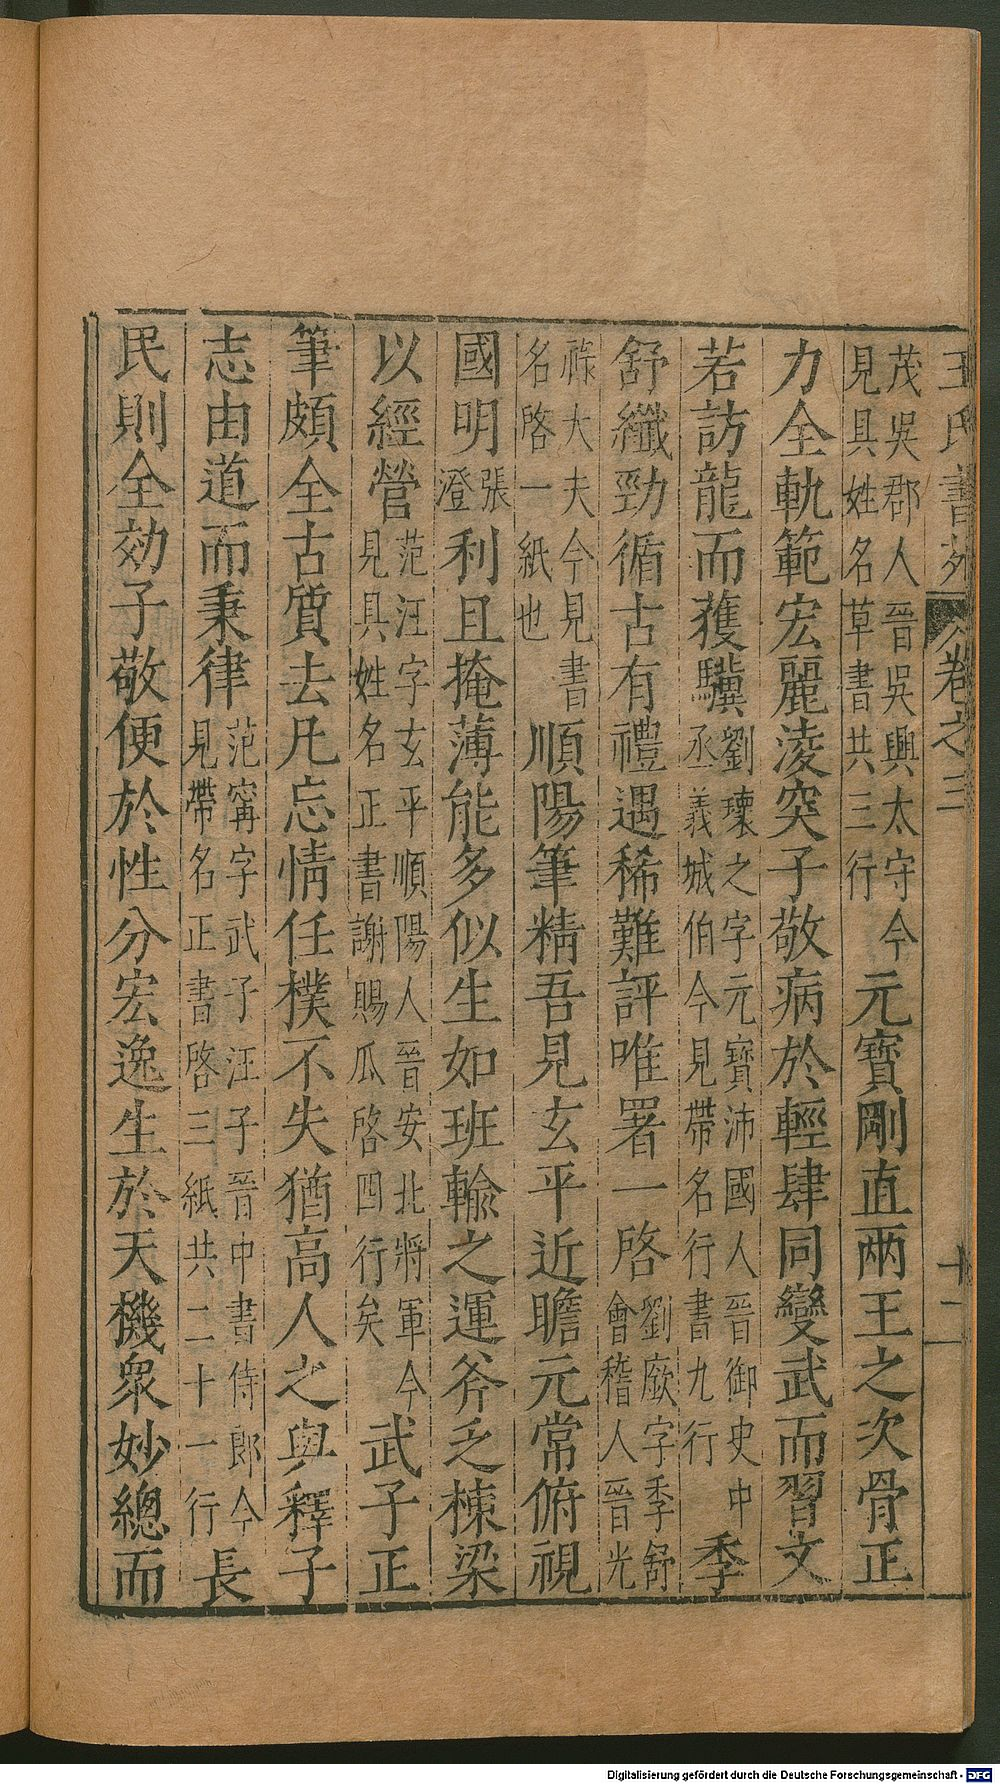 王氏書苑 卷之三 十二
茂吳郡人晉吳興太守今見具姓名草書共三行 元寶剛直兩王之次骨正
力全軌範宏麗淩突子敬病於輕肆同變武而習文
若訪龍而獲驥劉瓌之字元寶沛國人晉御史中丞義城伯今見帶名行書九行 季
舒纖勁循古有禮遇稀難評唯署一啓劉廞字季舒會稽人晉光
祿大夫今見書名啓一紙也 順陽筆精吾見玄平近瞻元常俯視
國明張澄利且掩薄能多似生如班輸之運斧乏棟梁
以經營范汪字玄平順陽人晉安北將軍今見具姓名正書謝賜瓜啓四行矣 武子正
筆頗全古質去凡忘情任樸不失猶高人之與釋子
志由道而秉律范甯字武子汪子晉中書侍郎今見帶名正書啓三紙共二十一行 長
民則全効子敬便於性分宏逸生於天機衆妙總而
Digitalisierung gefördert durch die Deutsche Forschungsgemeinschaft - DFG